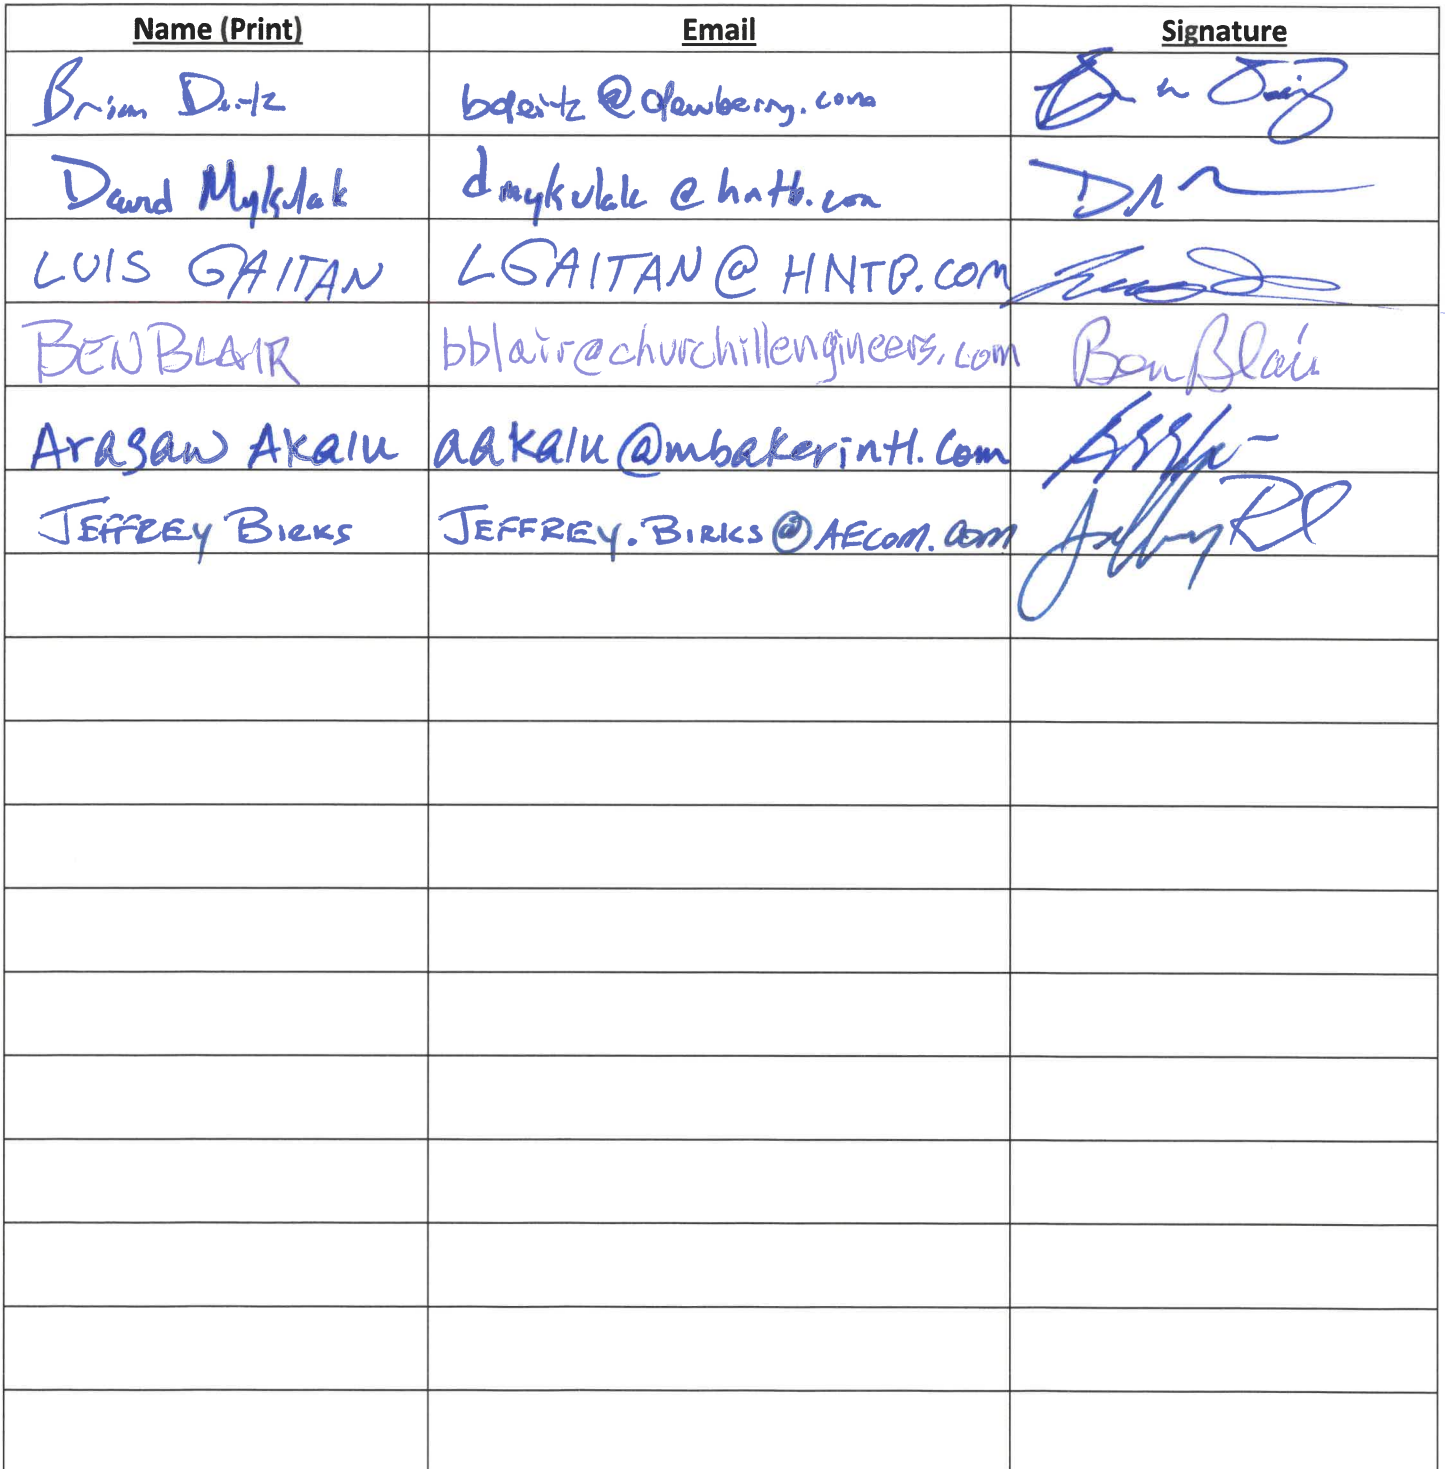 Name (Print) Email Signature
Brian Deitz bdeitz@dewberry.com
David Mykulak dmykulak@hntb.com
LUIS GAITAN LGAITAN@HNTB.COM
BEN BLAIR bblair@churchillengineers.com Ben Blair
Aragaw Akalu aakalu@mbakerintl.com
JEFFREY BIRKS JEFFREY.BIRKS@AECOM.COM